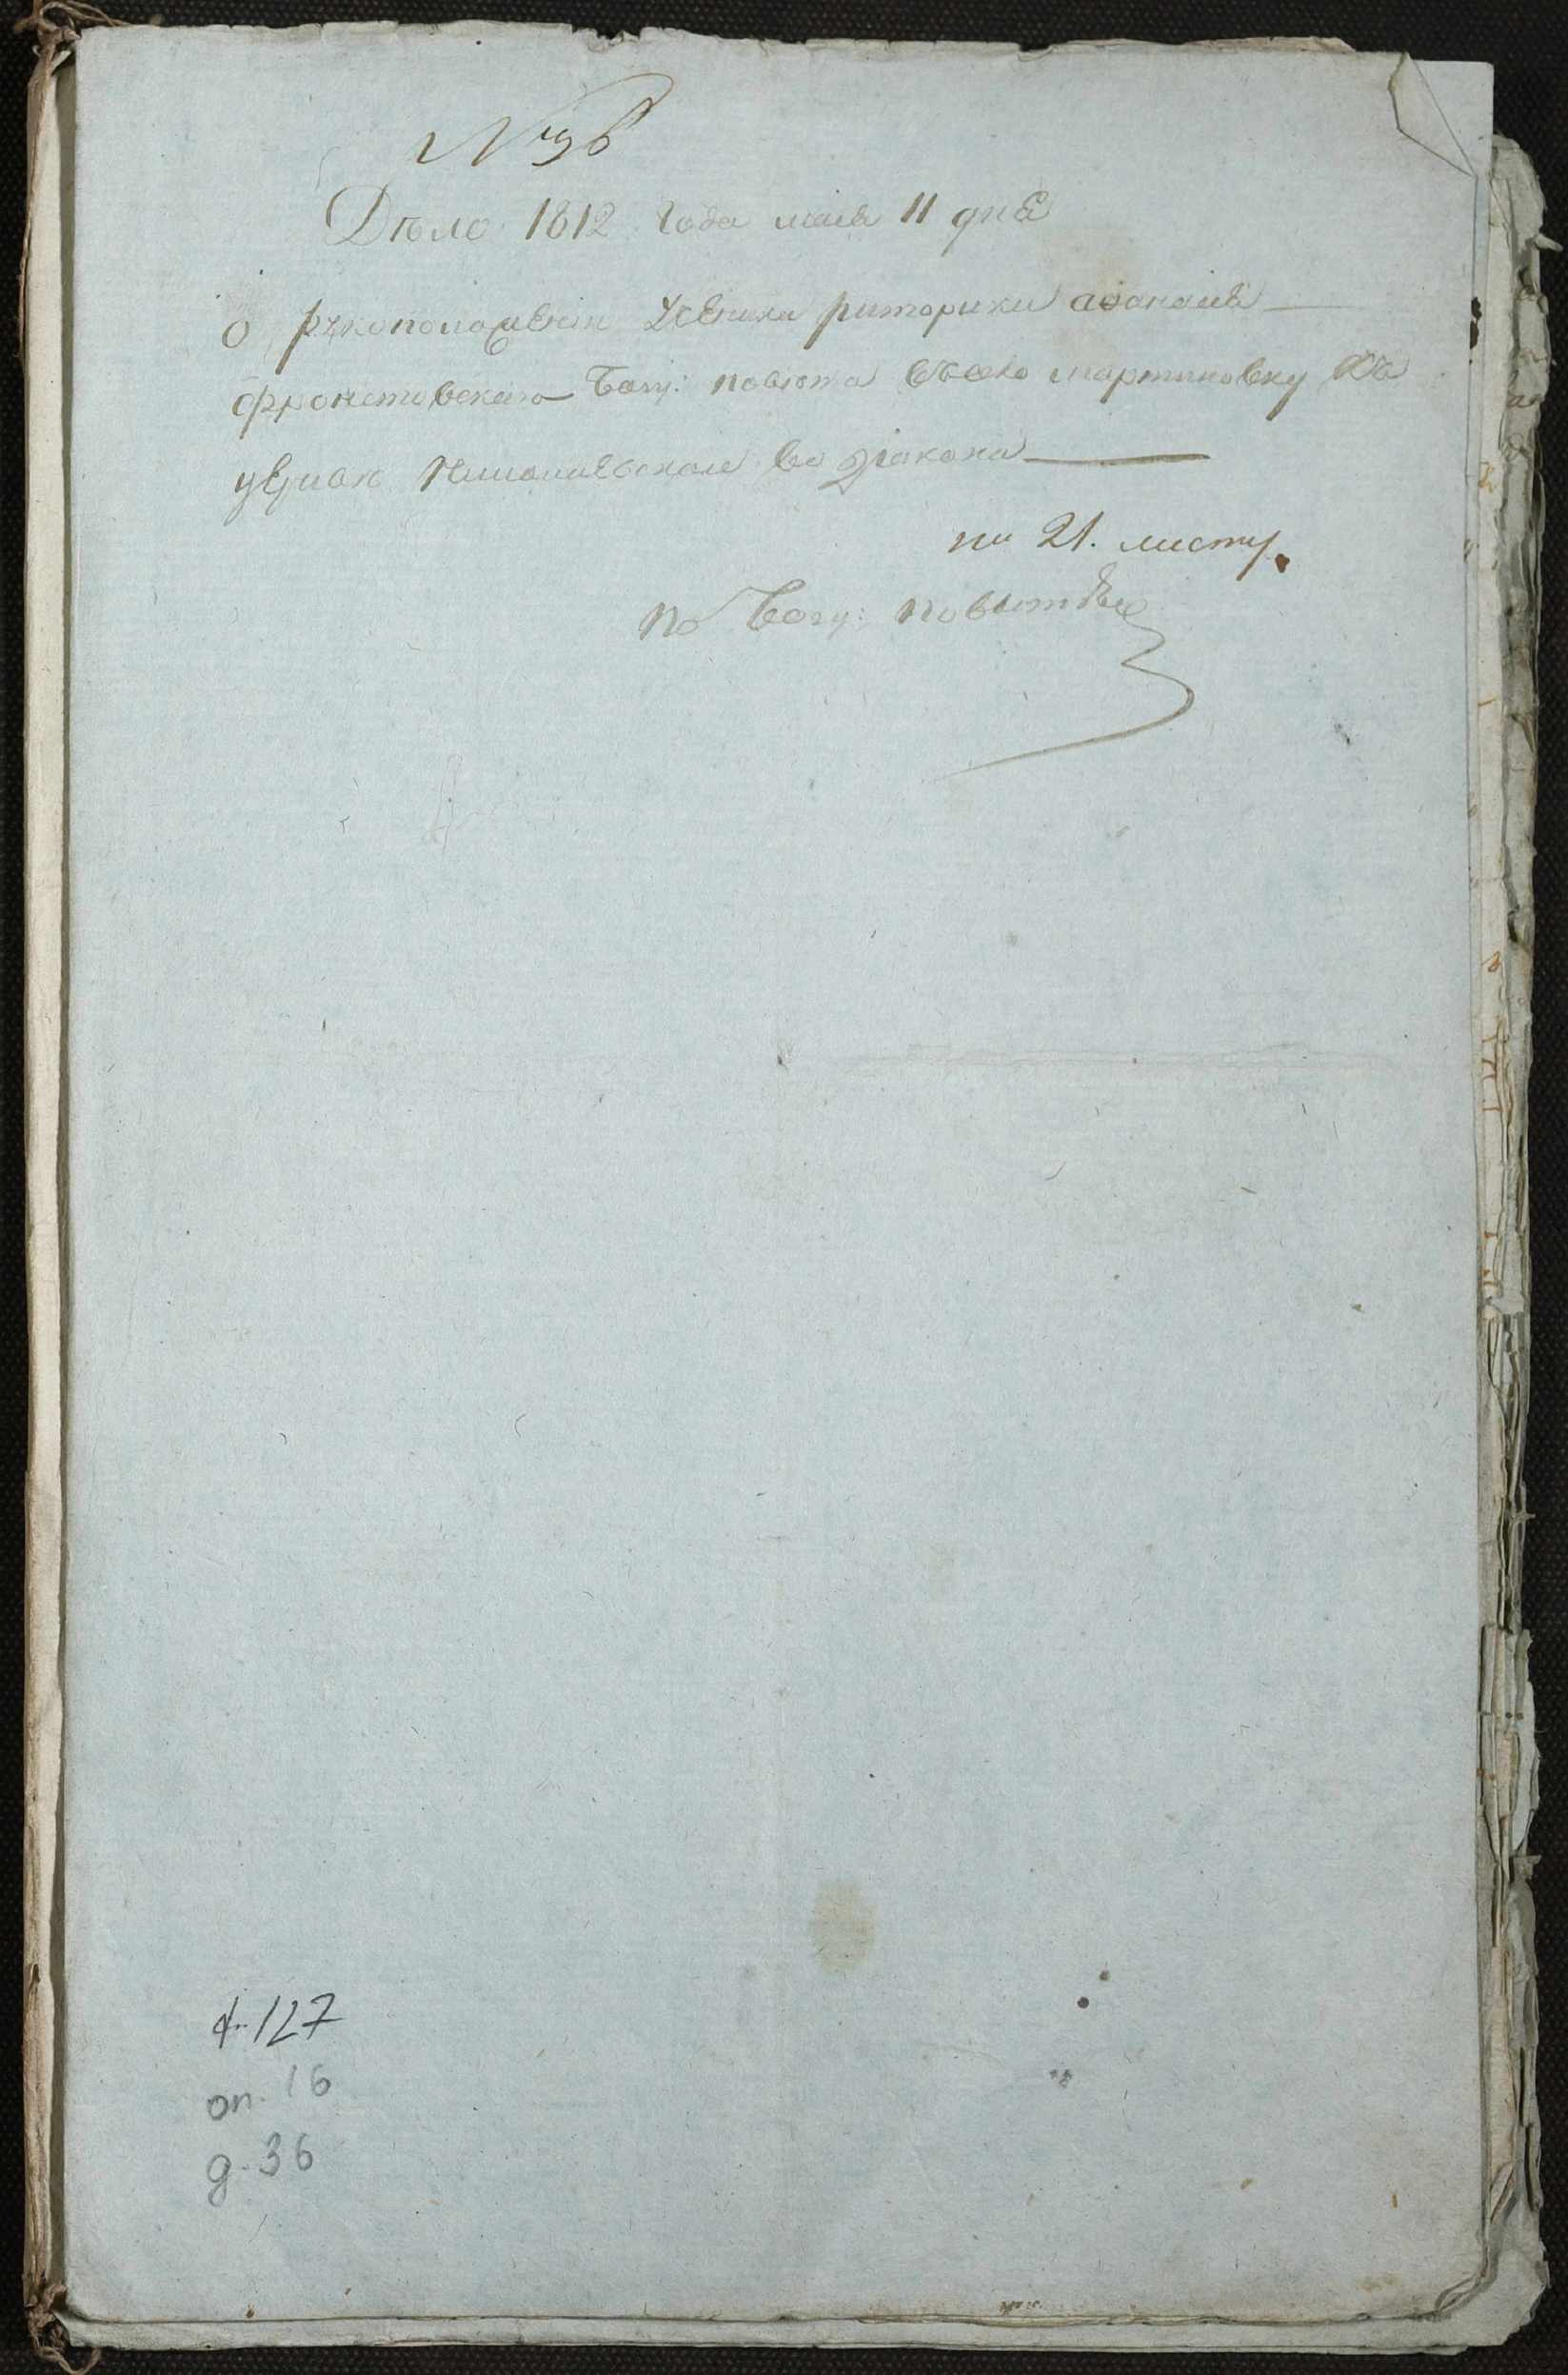 № 36
Дѣло 1812 года маія 11 дня
О рукоположеніи Ученика риторики афанасія
повѣта въ село мартиновку къ
церкви Николаевской во діакона
на 21. листу
по Богу: повытью
ф. 127
оп. 16
д. 36